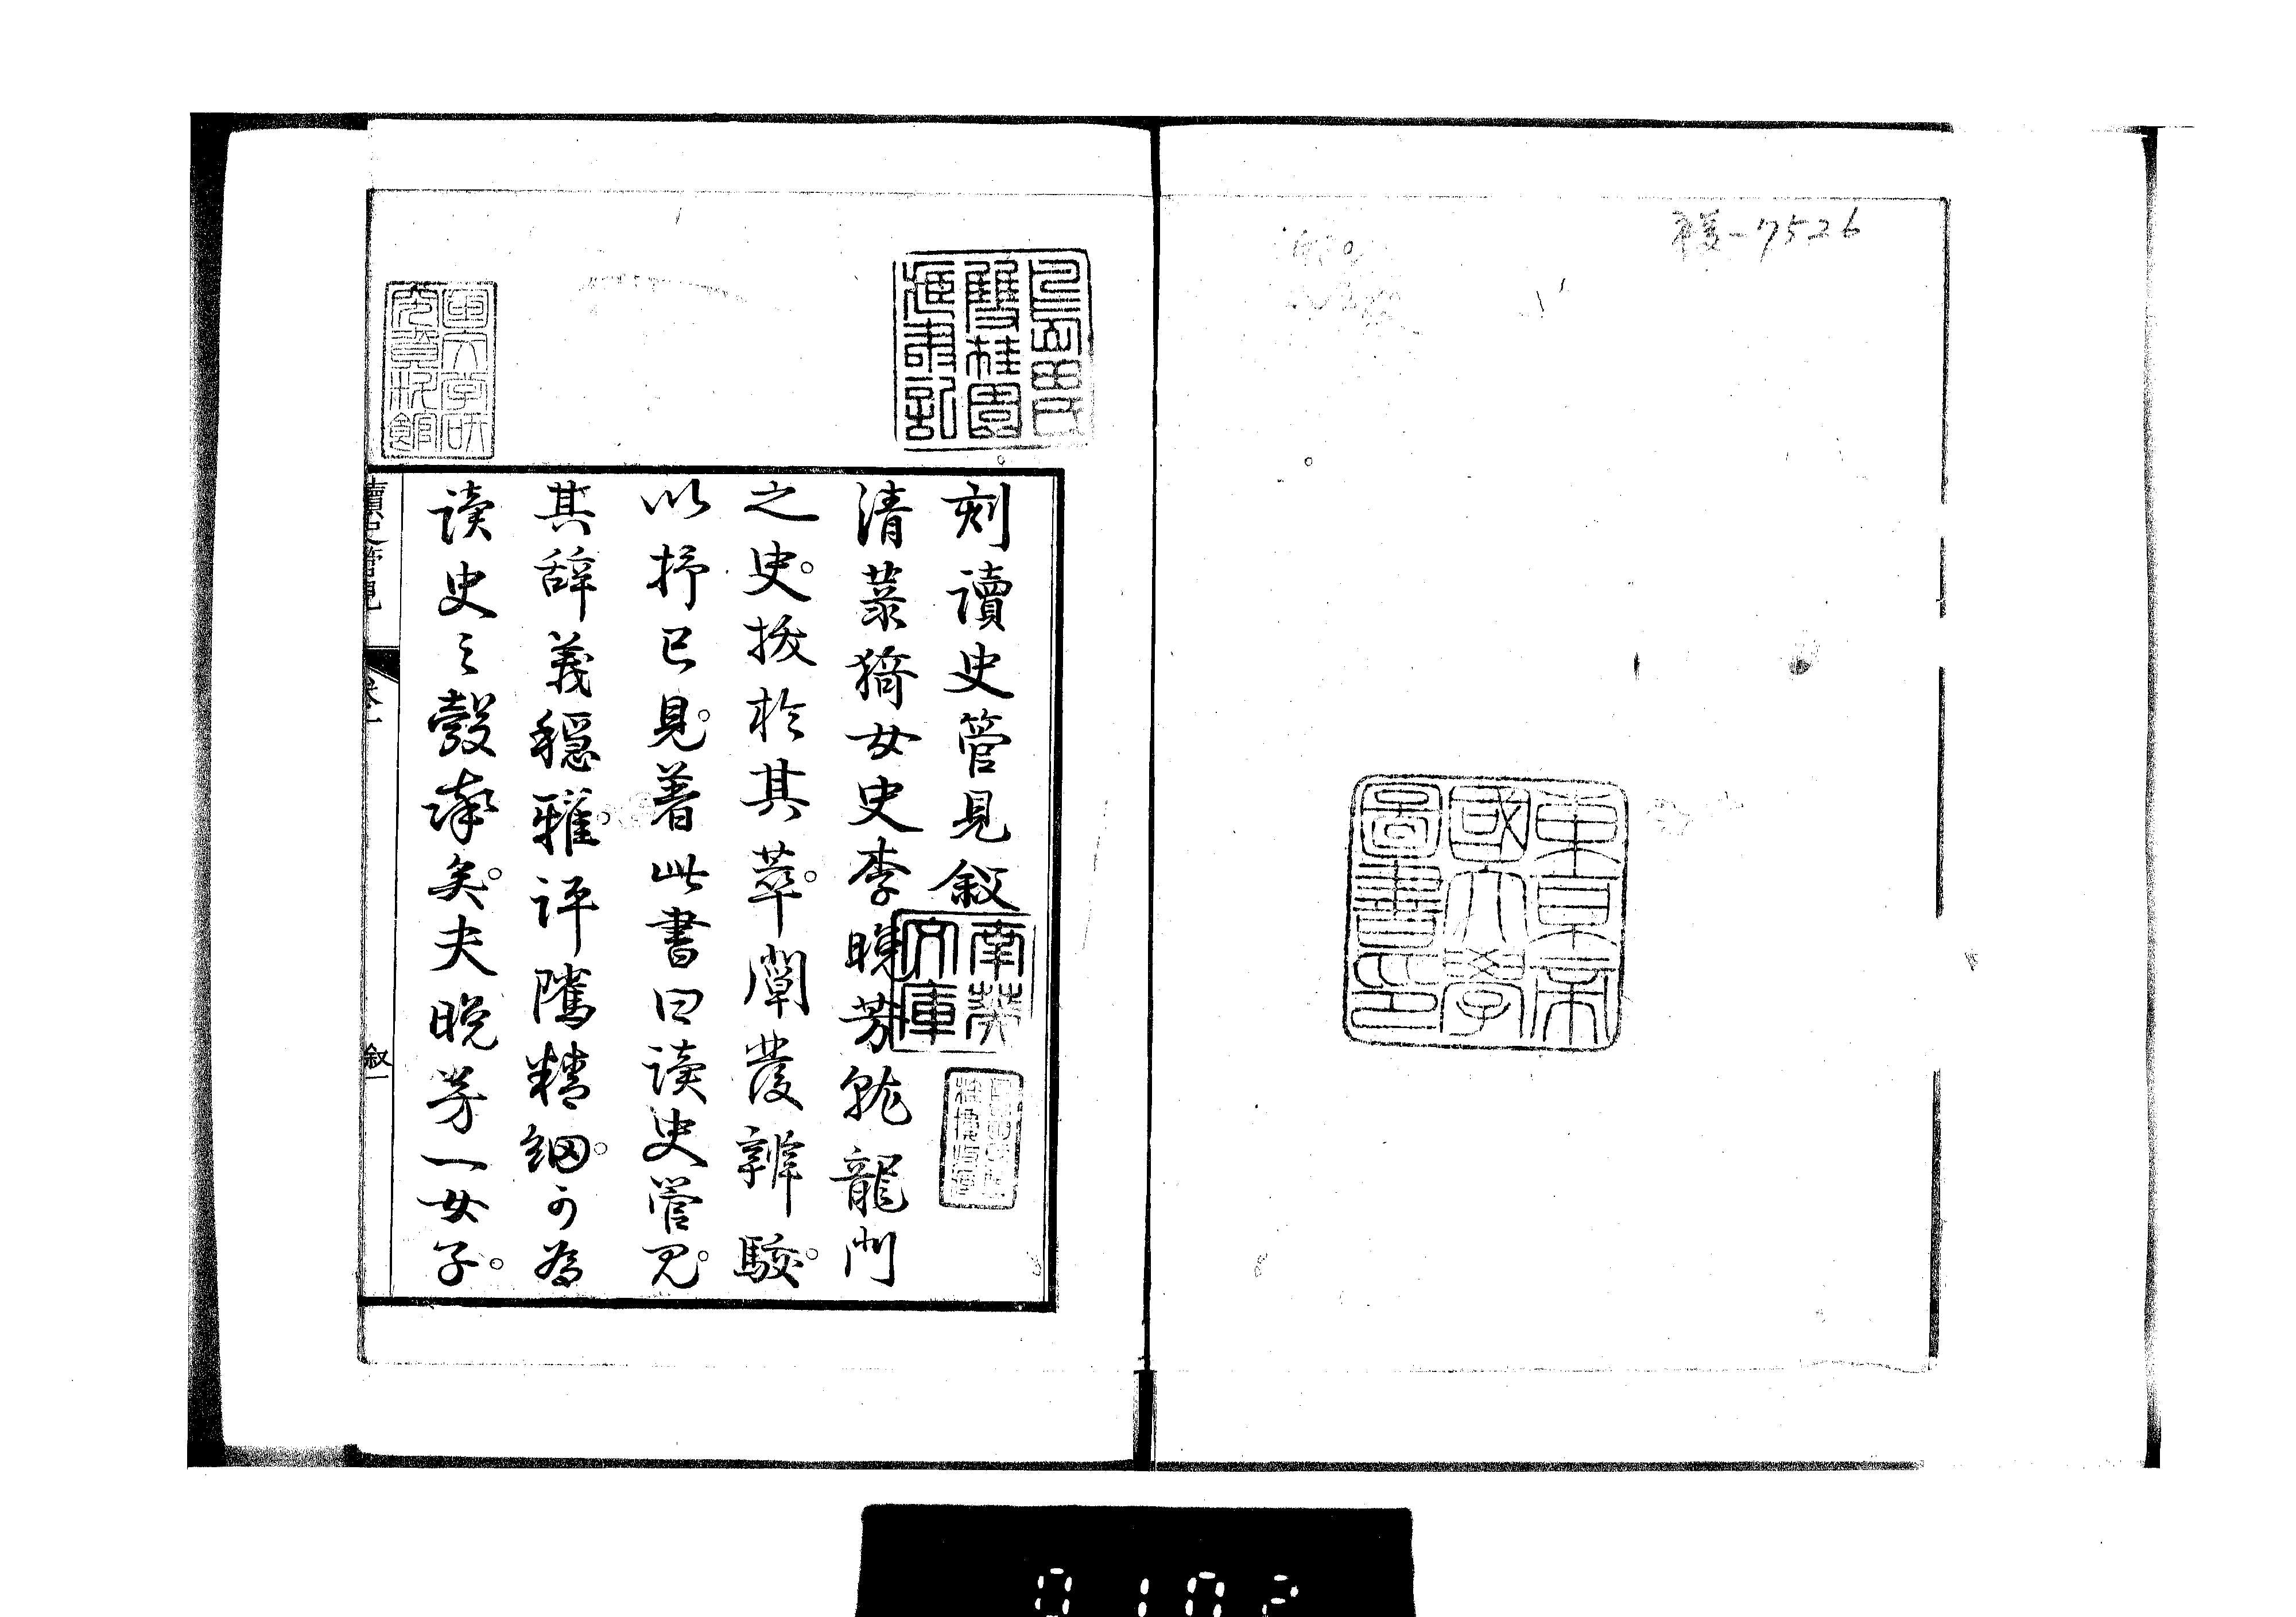 東京帝
國大學
圖書印
刻讀史管見叙
清菉猗女史李晚芳就龍門
之史。拔於其萃。闡發辨駁。
以抒已見。著此書曰读史管見。
其辞義穏雅。评隲精細。可為
读史之彀率矣。夫晚芳一女子。
讀史管見
卷一
叙一
雙桂園
南葵
文庫
7526
0102